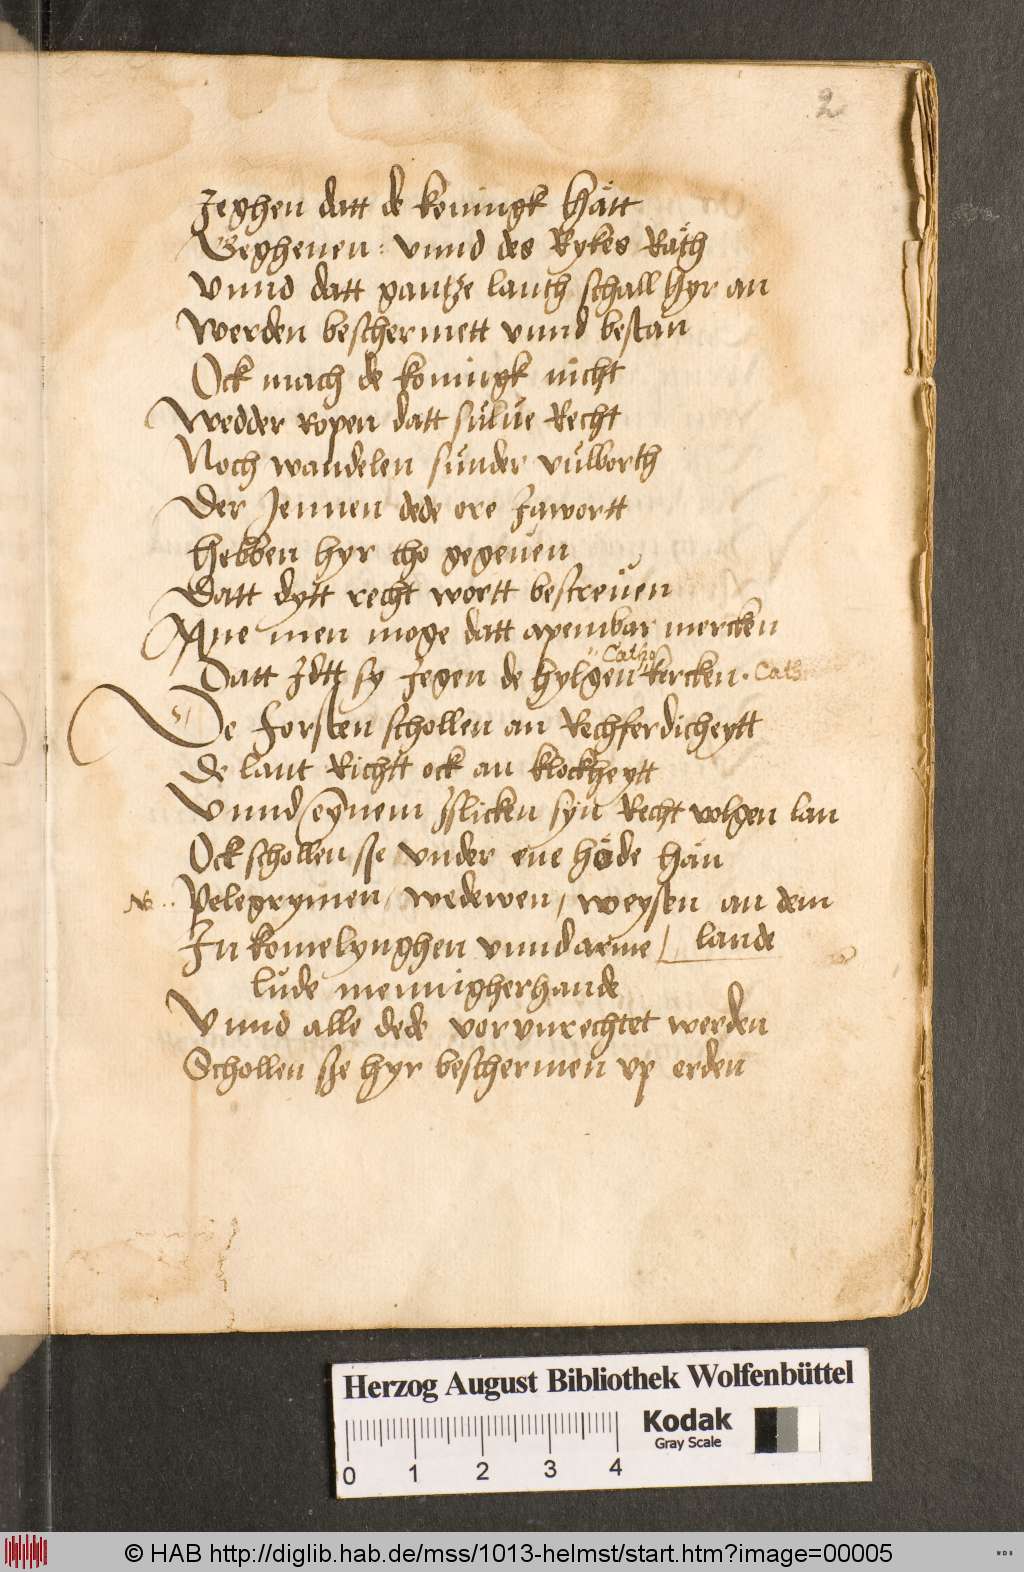 2
Jeghen datt de koningk hätt
Geghenen : vnnd des Rykes Räth
Vnnd datt gantze lanth schall hyr an
Werden beschermett vnnd bestan
Ock mach de koningk nicht
Wedder ropen datt sülue Recht
Noch wandelen sünder vulborth
Der Jennen dede ore Jawortt
hebben hyr tho gegeuen
Datt dytt recht wortt bescreuen
Ane men moge datt apenbar mercken
Cathol
Datt Jdtt sy Jegen de hylgen kercken .
De forsten schollen an Rechferdicheytt
de lant Richtt ock an klockheytt
Vnnd eynem Jslicken syn Recht volgen lan
Ock schollen sse vnder ene höde hän
NB .. Pelegrymen / wedewen / weysen an dem
lande
In komelynghen vnnd arme /
lude mennigherhande
Vnnd alle dede vorvnrechtet werden
Schollen sse hyr beschermen vp erden
Herzog August Bibliothek Wolfenbüttel
0 1 2 3 4
Kodak
Gray Scale
© HAB http://diglib.hab.de/mss/1013-helmst/start.htm?image=00005